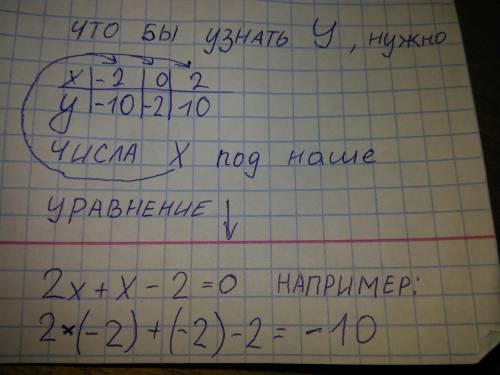 ЧТО БЫ УЗНАТЬ У, НУЖНО
X | -2 | 0 | 2
y | -10 | -2 | 10
ЧИСЛА X под наше
УРАВНЕНИЕ ↓
2x + x - 2 = 0 НАПРИМЕР:
2×(-2) + (-2) - 2 = -10